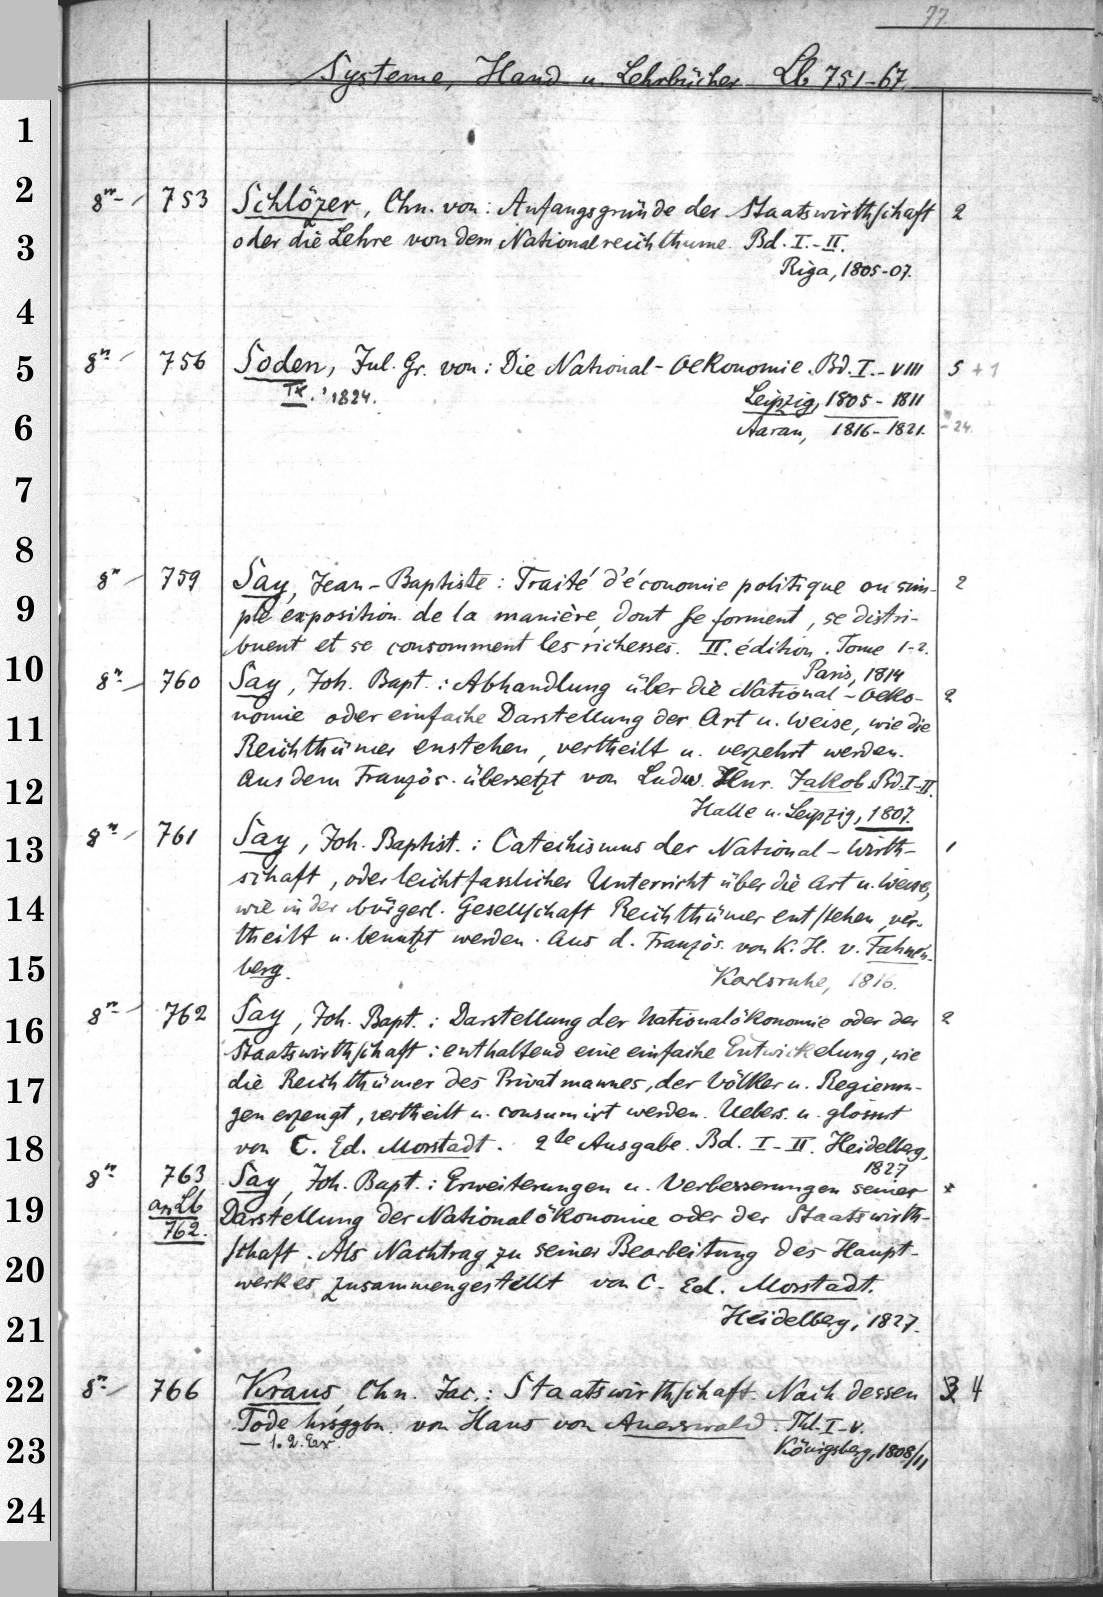 77.
Systeme, Hand u. Lehrbücher Lb 751-67.
1
2
8º- / 753 Schlözer, Chn. von: Anfangsgründe der Staatswirthschaft 2
3
oder die Lehre von dem Nationalreichthume. Bd. I.-II.
Riga, 1805-07.
4
5
8º / 756 Soden, Jul. Gr. von: Die National-Oekonomie. Bd. I.-VIII 5 + 1
IX. 1824. Leipzig, 1805-1811
6
Aarau, 1816-1821. -24.
7
8
8º / 759 Say, Jean-Baptiste: Traité d'économie politique ou sim- 2
9
ple exposition de la manière, dont se forment, se distri-
buent et se consomment les richesses. II. édition. Tome 1-2.
10
Paris, 1814
8º / 760 Say, Joh. Bapt.: Abhandlung über die National-Oeko- 2
11
nomie oder einfache Darstellung der Art u. Weise, wie die
Reichthümer enstehen, vertheilt u. verzehrt werden.
12
Aus dem Französ. übersetzt von Ludw. Hnr. Jakob. Bd. I-II.
Halle u. Leipzig, 1807.
13
8º / 761 Say, Joh. Baptist.: Catechismus der National-Wirth- 1
schaft, oder leichtfasslicher Unterricht über die Art u. Weise,
14
wie in der bürgerl. Gesellschaft Reichthümer entstehen, ver-
theilt u. benutzt werden. Aus d. Französ. von K. H. v. Fahnen-
15
berg. Karlsruhe, 1816.
16
8º / 762 Say, Joh. Bapt.: Darstellung der Nationalökonomie oder der 2
Staatswirthschaft: enthaltend eine einfache Entwickelung, wie
17
die Reichthümer des Privatmannes, der Völker u. Regierun-
gen erzeugt, vertheilt u. consumirt werden. Uebers. u. glossirt
18
von C. Ed. Morstadt. 2te Ausgabe. Bd. I-II. Heidelberg,
1827
8º 763 Say, Joh. Bapt.: Erweiterungen u. Verbesserungen seiner *
19
an Lb Darstellung der Nationalökonomie oder der Staatswirth-
762.
20
schaft. Als Nachtrag zu seiner Bearbeitung des Haupt-
werkes zusammengestellt von C. Ed. Morstadt.
21
Heidelberg, 1827.
22
8º / 766 Kraus Chn. Jac.: Staatswirthschaft. Nach dessen 3 4
Tode hrsggbn. von Hans von Auerswald. Thl. I-V.
23
— 1. 2. Ex. Königsberg, 1808/11
24